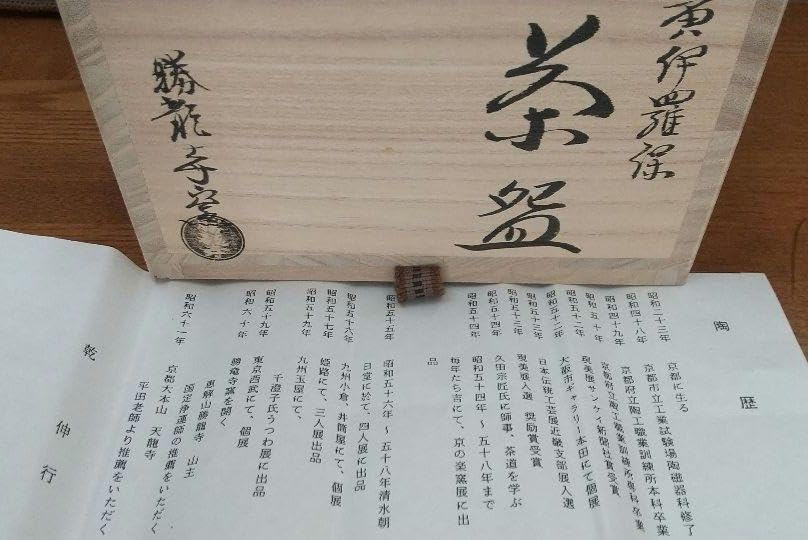 黄伊羅保
茶盌
勝龍寺窯
陶歴
昭和二十三年 京都に生る
昭和四十八年 京都市立工業試験場陶磁器科修了
京都府立陶工職業訓練所本科卒業
昭和四十九年 京都府立陶工職業訓練所専科卒業
昭和五十年 現美展サンケイ新聞社賞受賞
昭和五十二年 大阪市ギャラリー本田にて個展
昭和五十二年 日本伝統工芸展近畿支部展入選
昭和五十三年 現美展入選 奨励賞受賞
昭和五十三年 久田宗匠氏に師事、茶道を学ぶ
昭和五十四年 昭和五十四年〜五十八年まで
昭和五十四年 毎年たち吉にて、京の楽窯展に出
品
昭和五十五年 昭和五十六年〜五十八年清水朝
日堂に於て、四人展に出品
昭和五十六年 九州小倉、井筒屋にて、個展
昭和五十七年 姫路にて、三人展出品
昭和五十九年 九州玉屋にて、
千澄子氏うつわ展に出品
昭和五十九年 東京西武にて、個展
昭和六十年 勝竜寺窯を開く
恵解山勝龍寺 山主
国定浄蓮師の推薦をいただく
昭和六十一年 京都大本山 天龍寺
平田老師より推薦をいただく
乾伸行